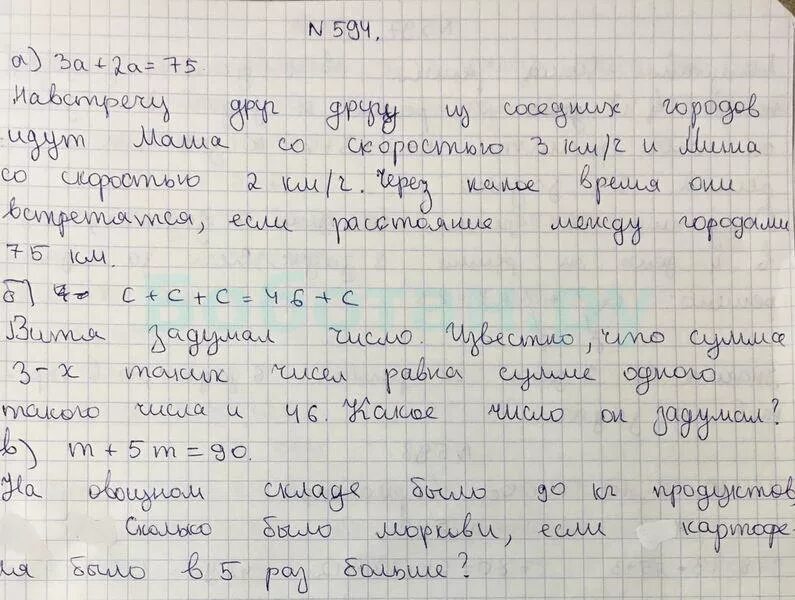 N 594.
а) 3а + 2а = 75.
Навстречу друг другу из соседних городов
идут Маша со скоростью 3 км/ч и Миша
со скоростью 2 км/ч. Через какое время они
встретятся, если расстояние между городами
75 км.
б) c + c + c = 46 + c
Витя задумал число. Известно, что сумма
3-х таких чисел равна сумме одного
такого числа и 46. Какое число он задумал?
в) m + 5 m = 90.
На овощном складе было 90 кг продуктов,
Сколько было моркви, если картофе-
ля было в 5 раз больше?